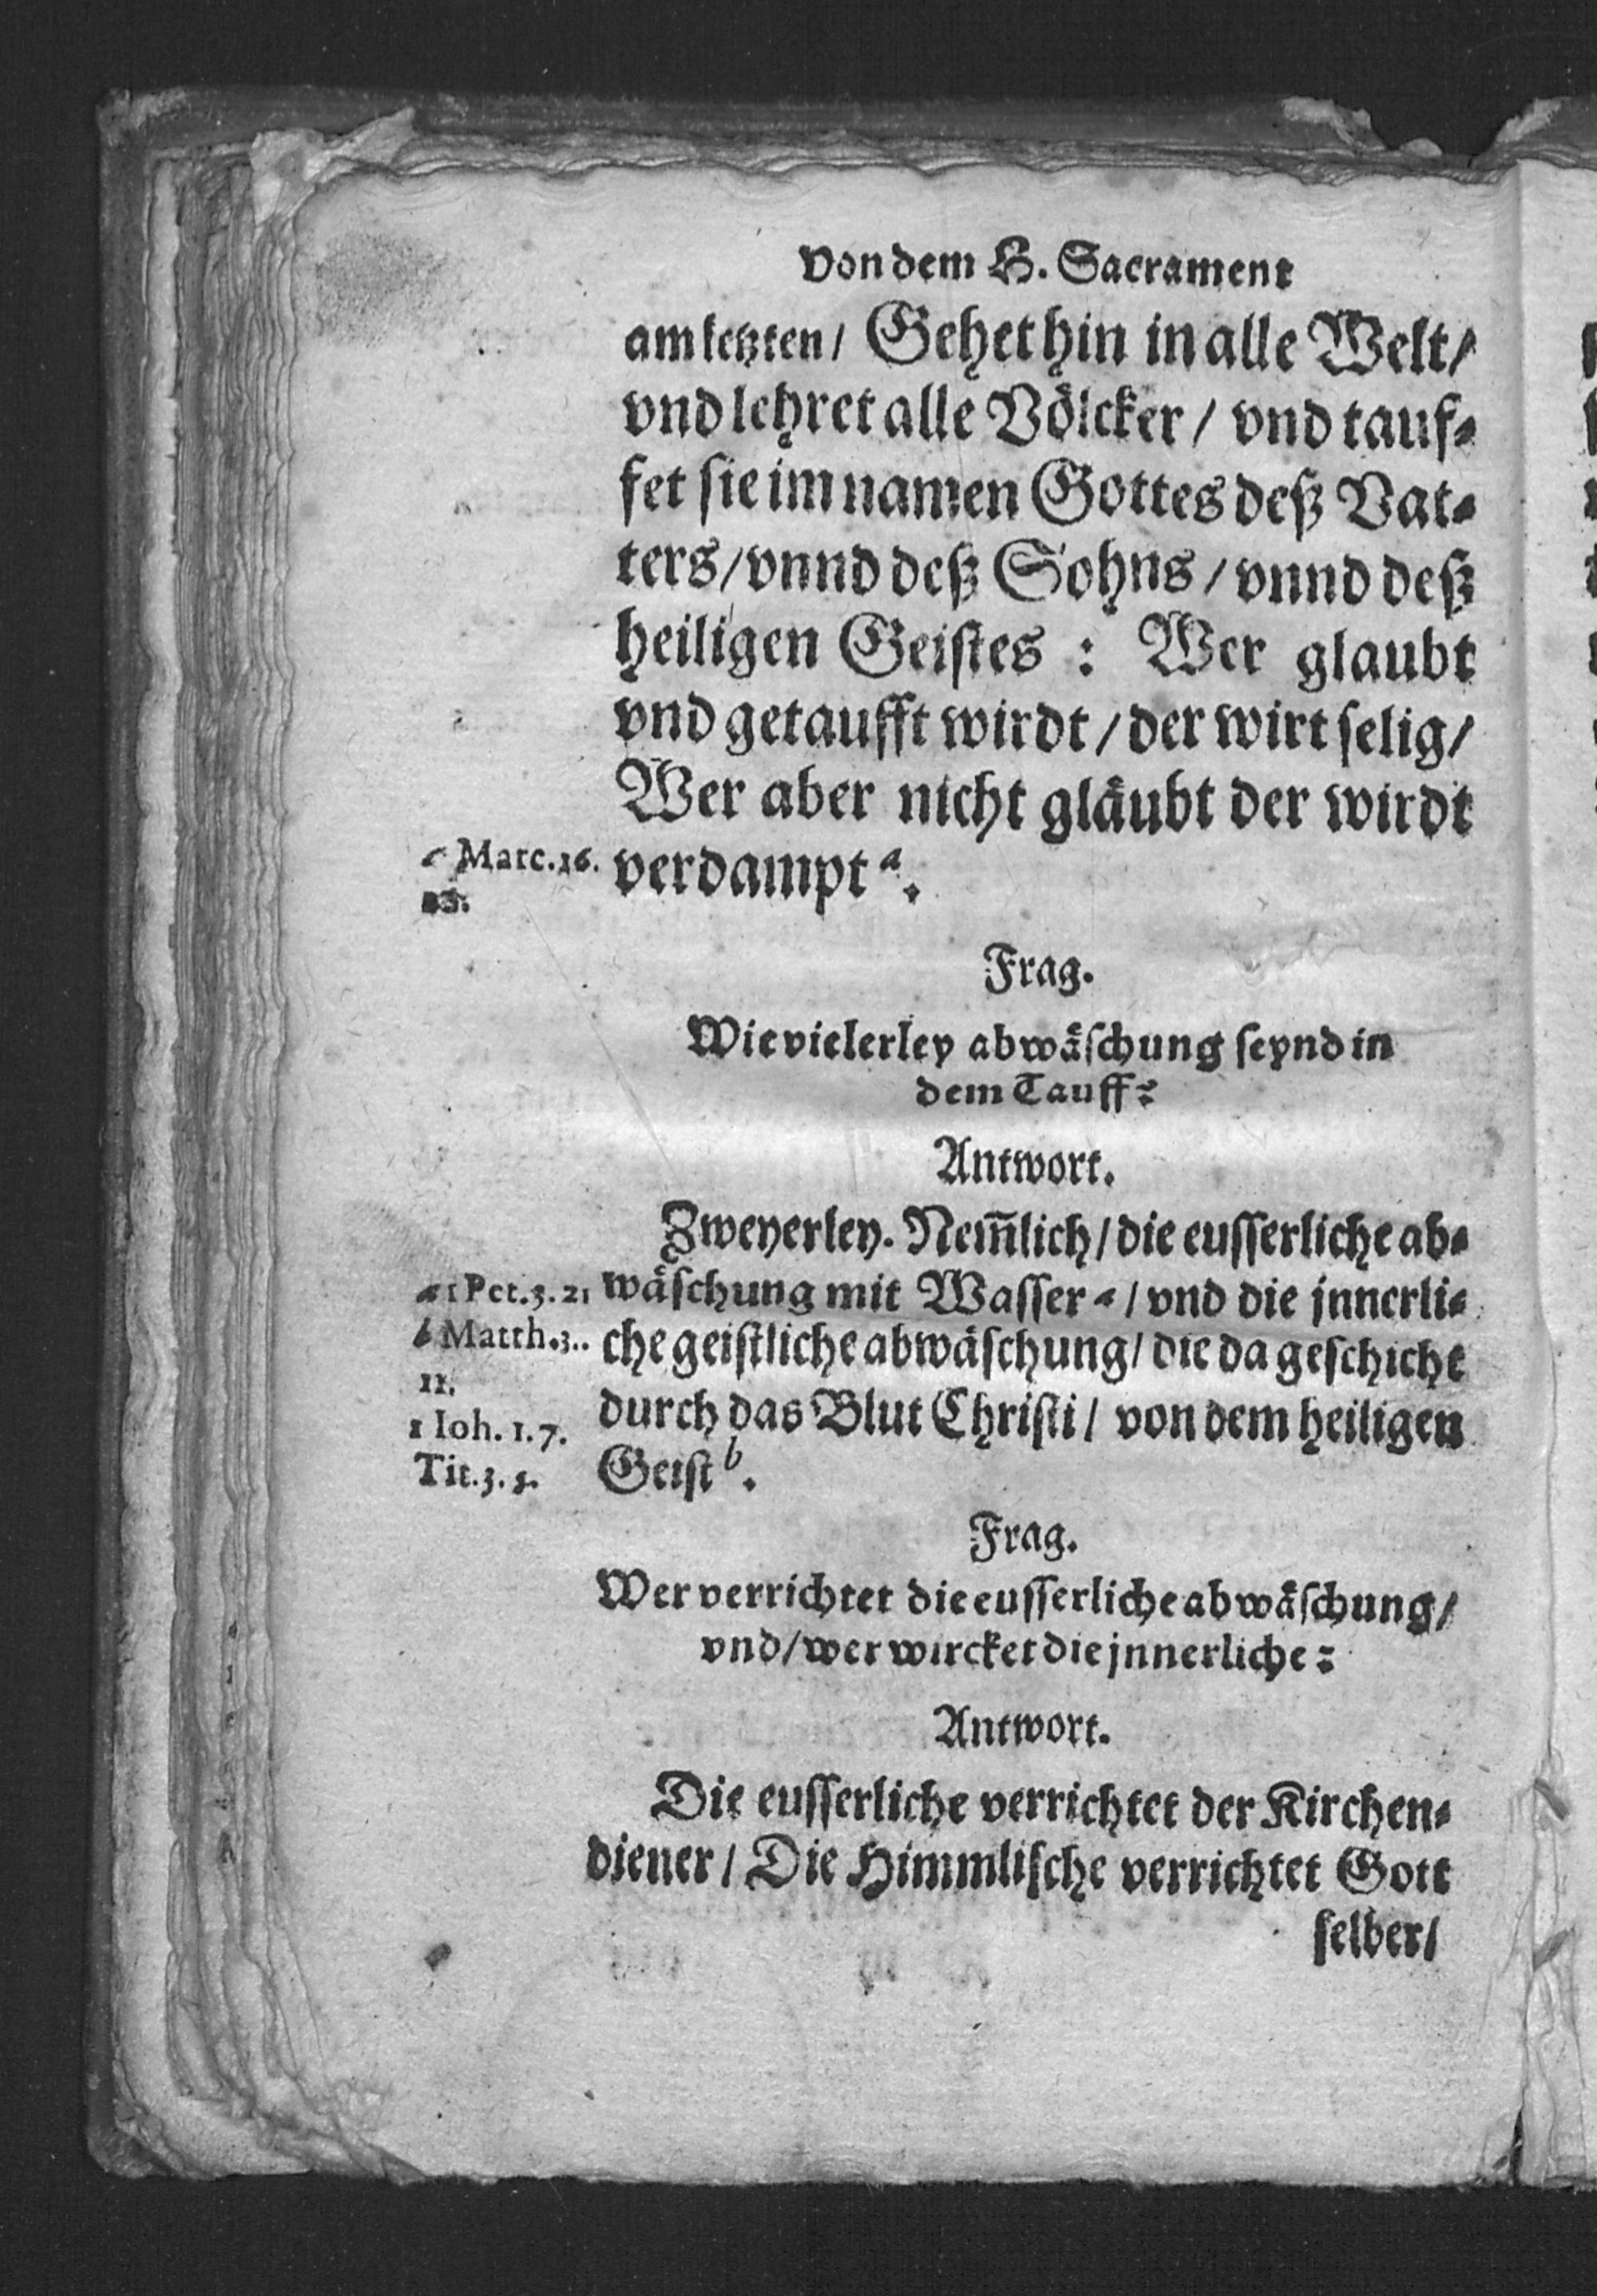 Von dem H. Sacrament
am letzten / Gehet hin in alle Welt /
vnd lehret alle Völcker / vnd tauf⸗
fet sie im namen Gottes deß Vat⸗
ters / vnnd deß Sohns / vnnd deß
heiligen Geistes : Wer glaubt
vnd getaufft wirdt / der wirt selig /
Wer aber nicht gläubt der wirdt
verdampt a.
a Marc. 16.
Frag.
Wie vielerley abwäschung seynd in
dem Tauff?
Antwort.
Zweyerley. Nem̃lich / die eusserliche ab⸗
wäschung mit Wasser a / vnd die jnnerli⸗
che geistliche abwäschung / die da geschicht
durch das Blut Christi / von dem heiligen
Geist b.
a 1 Pet. 3. 21
b Matth. 3..
11.
1 Ioh. 1. 7.
Tit. 3. 5.
Frag.
Wer verrichtet die eusserliche abwäschung /
vnd / wer wircket die jnnerliche?
Antwort.
Die eusserliche verrichtet der Kirchen⸗
diener / Die Himmlische verrichtet Gott
selber /